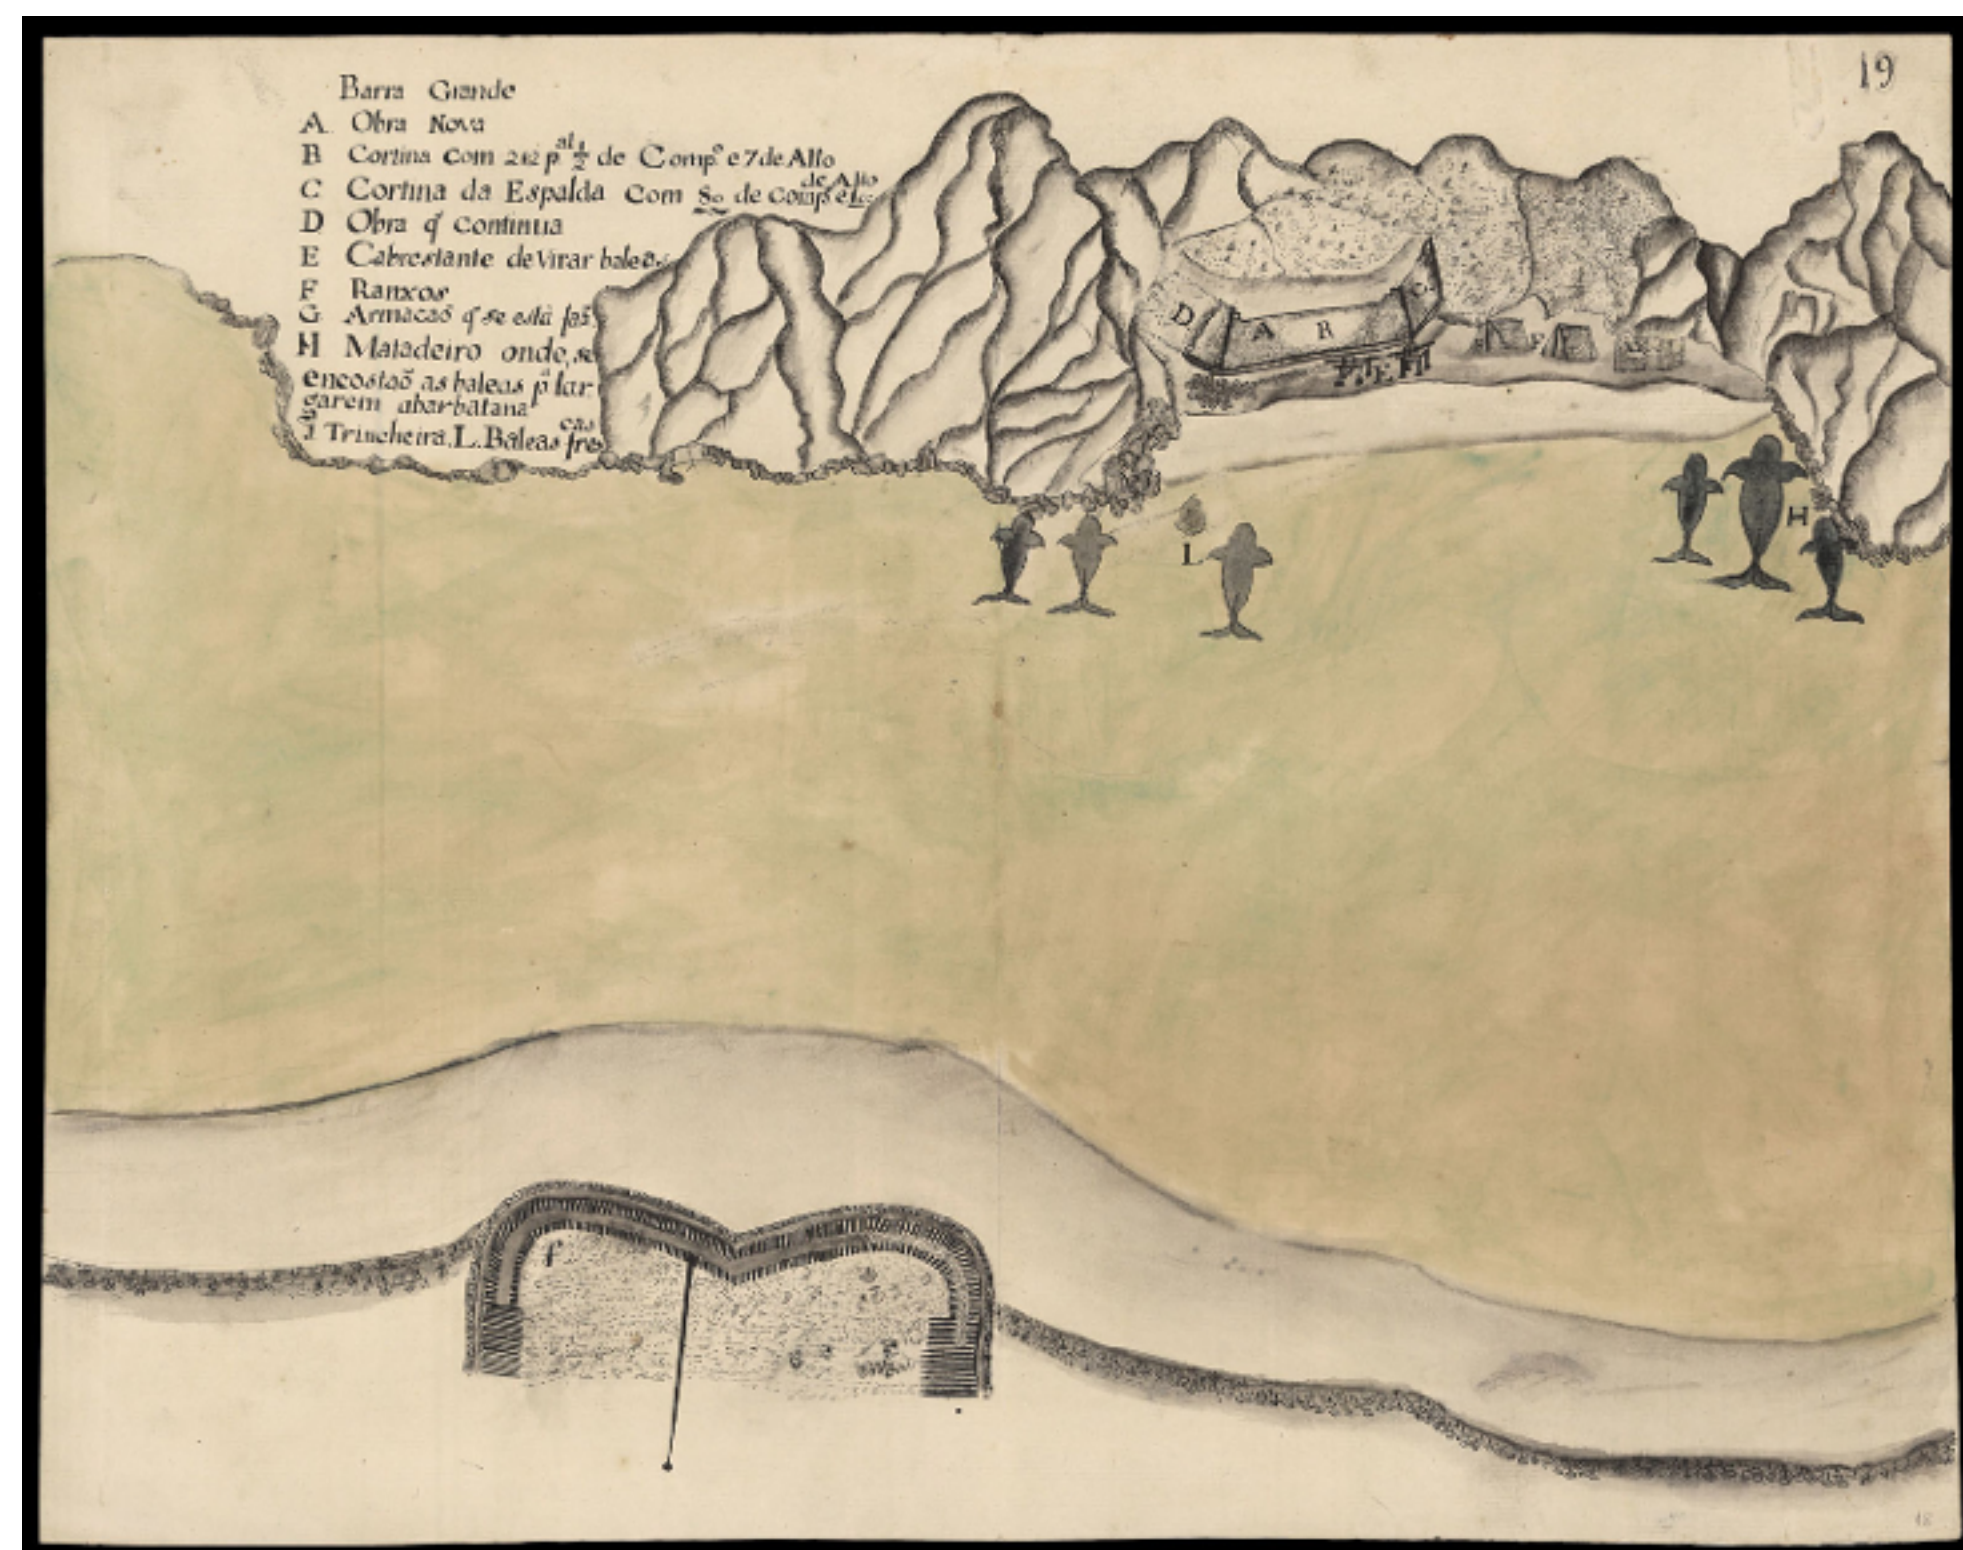 19
Barra Grande
A Obra Nova
B Cortina com 212 p.al ½ de Comp.º e 7 de Alto
C Cortina da Espalda Com 80 de Comp.º e de Alto
D Obra q̃ continua
E Cabrestante de Virar baleas
F Ranxos
G Armacaõ q̃ se está
H Matadeiro onde, se
encostaõ as baleas p.ª lar
garem abarbatana
Trincheira. L. Baleas frescas
D A B C
E
F
H
L
f
18